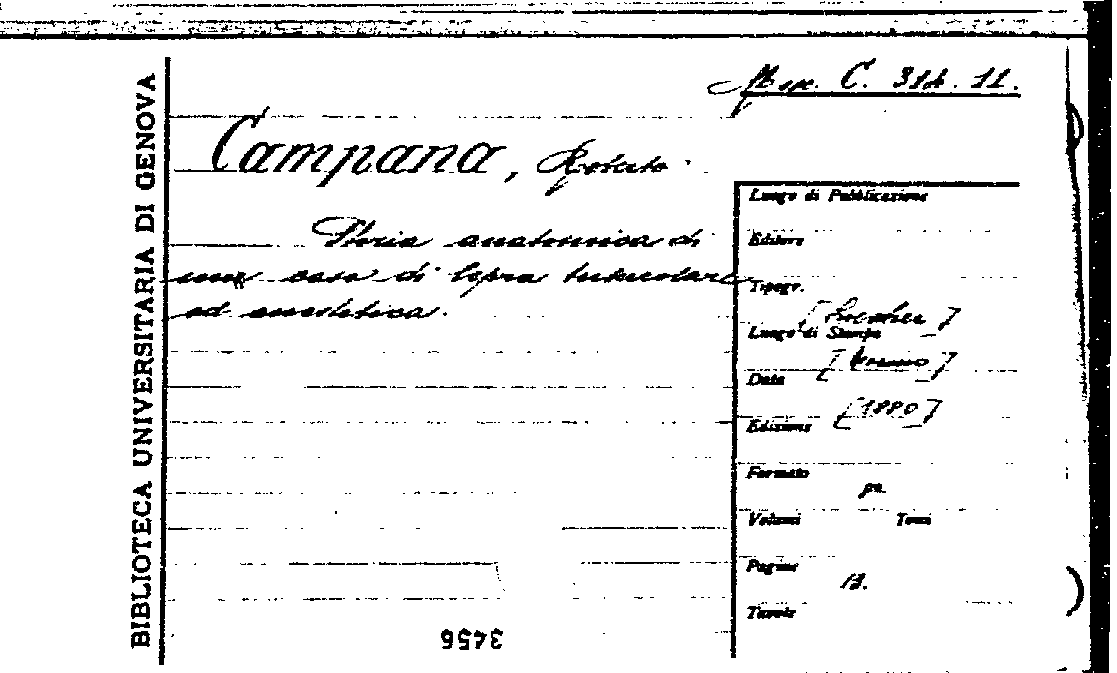 Misc. C. 314. 11.
BIBLIOTECA UNIVERSITARIA DI GENOVA
Campana, Roberto.
Storia anatomica di
un caso di lepra tubercolare
ed anestetica.
Luogo di Pubblicazione
Editore
Tipogr.
[Loescher]
Luogo di Stampa
[Torino]
Data
[1880]
Edizione
Formato
Volumi Tomi
Pagine 12.
Tavole
3456